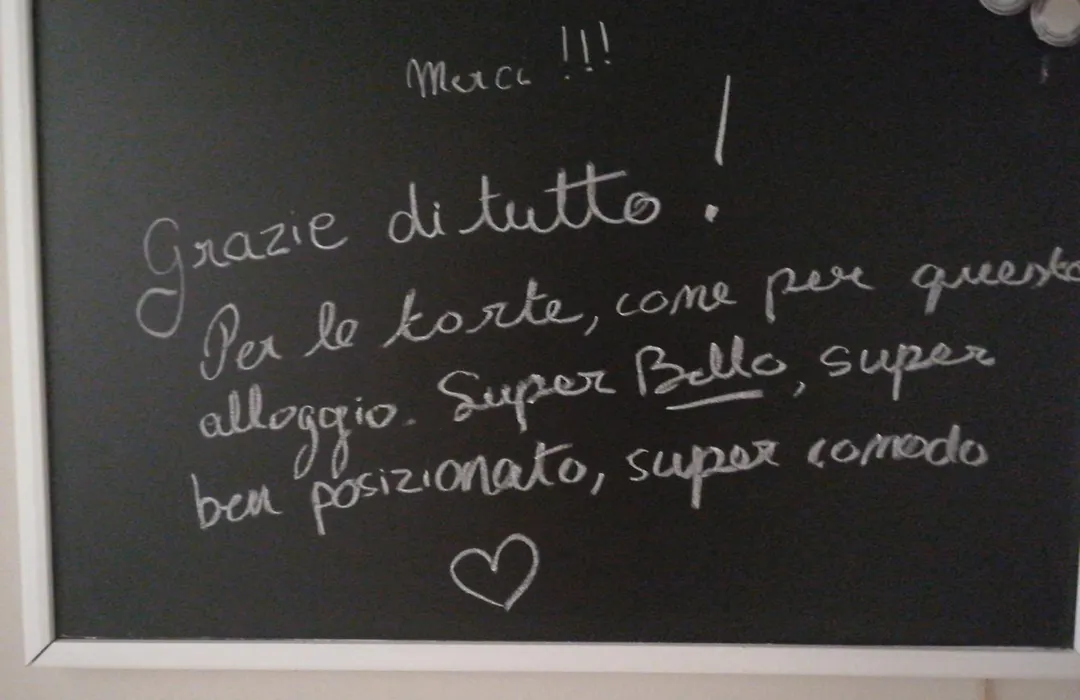 Merci !!!
Grazie di tutto !
Per le torte, come per questo
alloggio. Super Bello, super
ben posizionato, super comodo